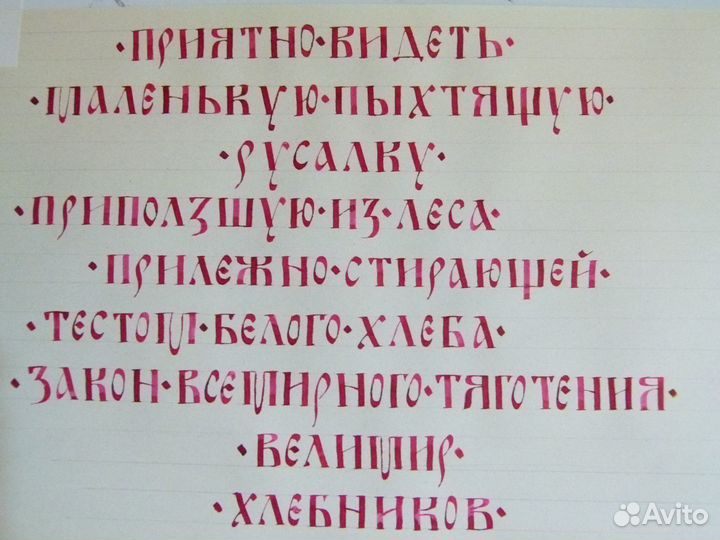 ·ПРИЯТНО·ВИДЕТЬ·
·МАЛЕНЬКУЮ·ПЫХТЯЩУЮ·
·РУСАЛКУ·
·ПРИПОЛЗШУЮ·ИЗ·ЛЕСА·
·ПРИЛЕЖНО·СТИРАЮЩЕЙ·
·ТЕСТОМ·БЕЛОГО·ХЛЕБА·
·ЗАКОН·ВСЕМИРНОГО·ТЯГОТЕНИЯ·
·ВЕЛИМИР·
·ХЛЕБНИКОВ·
Avito